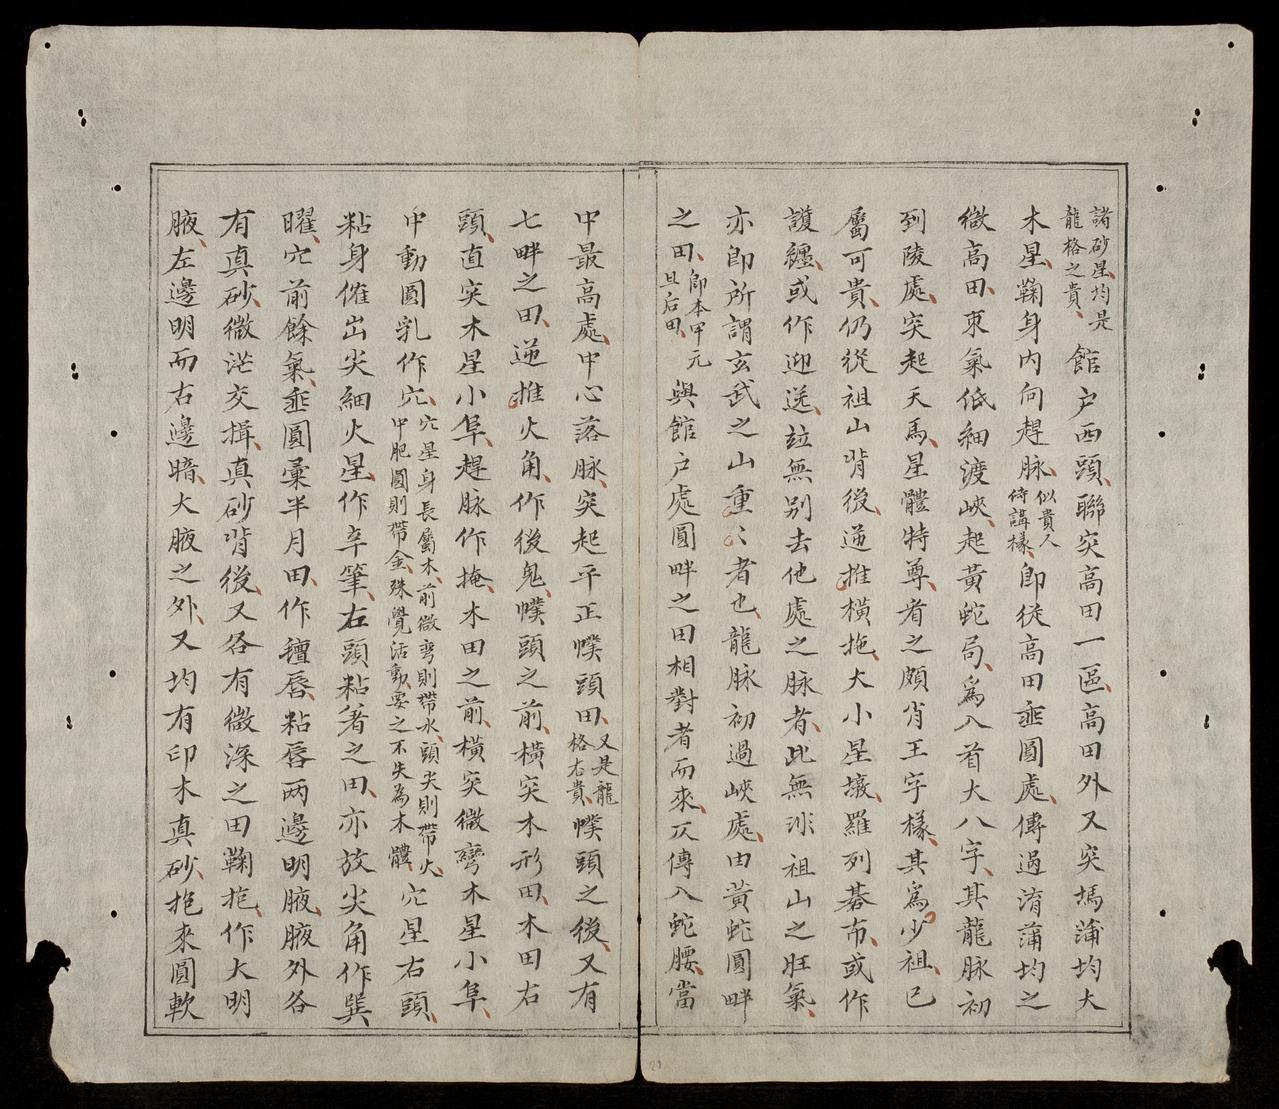 諸砂星均是龍格之貴館户西頭聯突高田一區高田外又突塢蒲均大
木星鞠身内向趕脉似貴人侍講樣即從高田垂圓處傳過淯蒲均之
微高田束氣低細渡峽起黃蛇局為入首大八字其龍脉初
到陵處突起天馬星體特尊者之頗肖王字樣其為少祖已
屬可貴仍從祖山背後迤推橫拖大小星墩羅列碁布或作
護纏或作迎送竝無别去他處之脉者此無非祖山之旺氣
亦即所謂玄武之山重〻者也龍脉初過峽處由黃蛇圓畔
之田即本甲元且后田與館户處圓畔之田相對者而來仄傳入蛇腰當
中最高處中心落脉突起平正幞頭田又是龍格右貴幞頭之後又有
七畔之田迤推火角作後鬼幞頭之前橫突木形田木田右
頭直突木星小阜趕脉作掩木田之前橫突微彎木星小阜
中動圓乳作穴穴星身長屬木前微彎則帶水頭尖則帶火中肥圓則帶金殊覺活動要之不失為木體穴星右頭
粘身催出尖細火星作卒筆右頭粘着之田亦放尖角作巽
曜穴前餘氣垂圓彙半月田作氊唇粘唇兩邊明腋腋外各
有真砂微茫交揖真砂背後又各有微深之田鞠抱作大明
腋左邊明而右邊暗大腋之外又均有印木真砂抱來圓軟